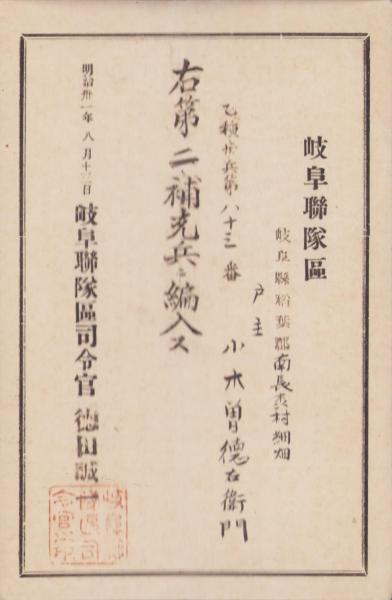 岐阜聯隊區
岐阜縣稻葉郡南長森村細畑
戸主
小木曽德右衛門
乙種步兵第八十三番
右第二補充兵ニ編入ス
明治卅一年八月十三日
岐阜聯隊區司令官 德田誠一
岐阜聯隊區司令官之印